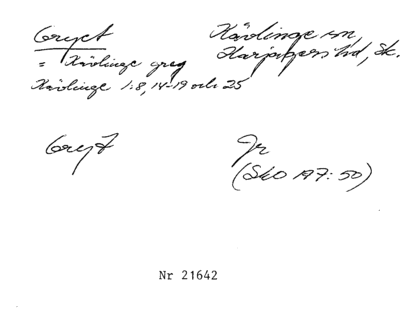 Gryet
Kävlinge sn,
Harjagers hd, Sk.
= Kävlinge greg
Kävlinge 1:8, 14-19 och 25
Gryt
Jr
(SkO 197: 50)
Nr 21642